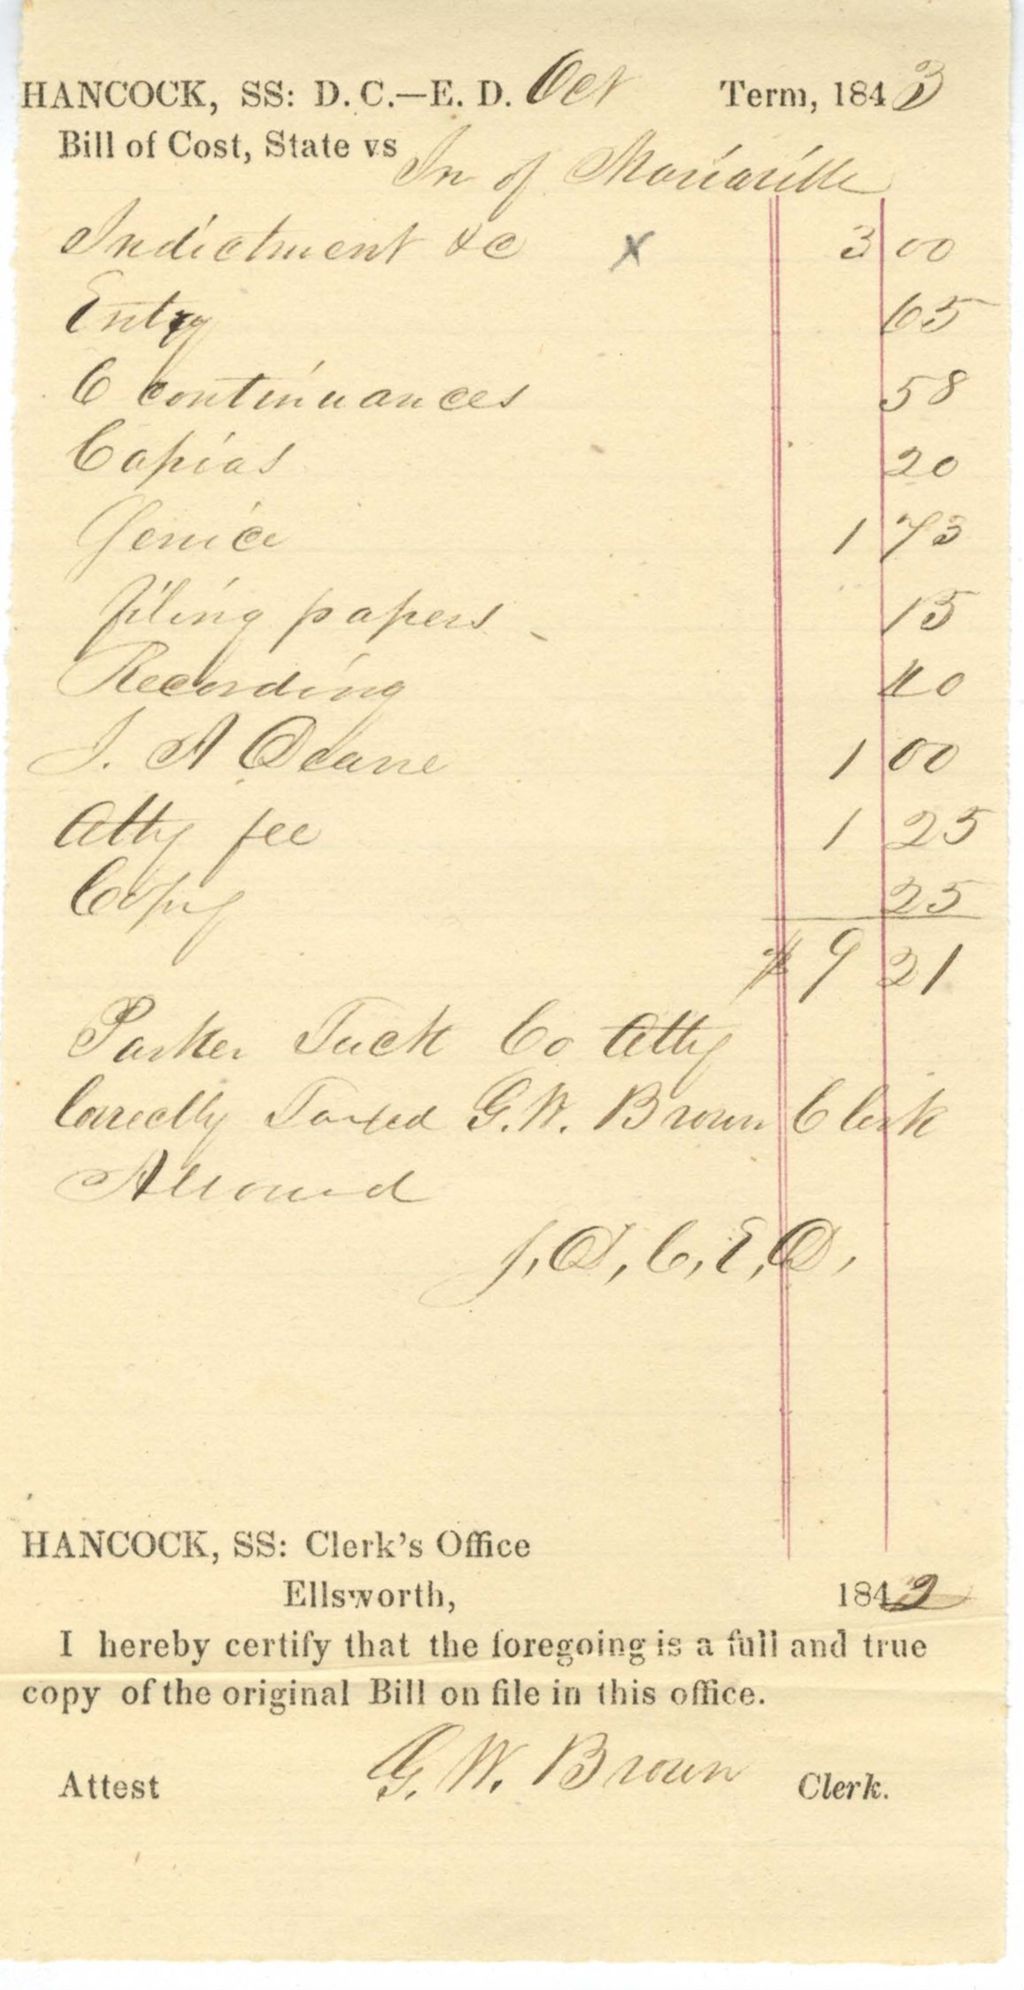 HANCOCK, SS: D. C.—E. D. Oct Term, 1843
Bill of Cost, State vs In of Mariaville
Indictment &c x 3 00
Entry 65
6 continuances 58
Capias 20
Service 1 73
filing papers 15
Recording 40
J. A Deane 1 00
Atty fee 1 25
Copy 25
$ 9 21
Parker Tuck Co Atty
Correctly Taxed G. W. Brown Clerk
Allowed
J, D, C, E, D,
HANCOCK, SS: Clerk's Office
Ellsworth, 184
I hereby certify that the foregoing is a full and true
copy of the original Bill on file in this office.
Attest G. W. Brown Clerk.